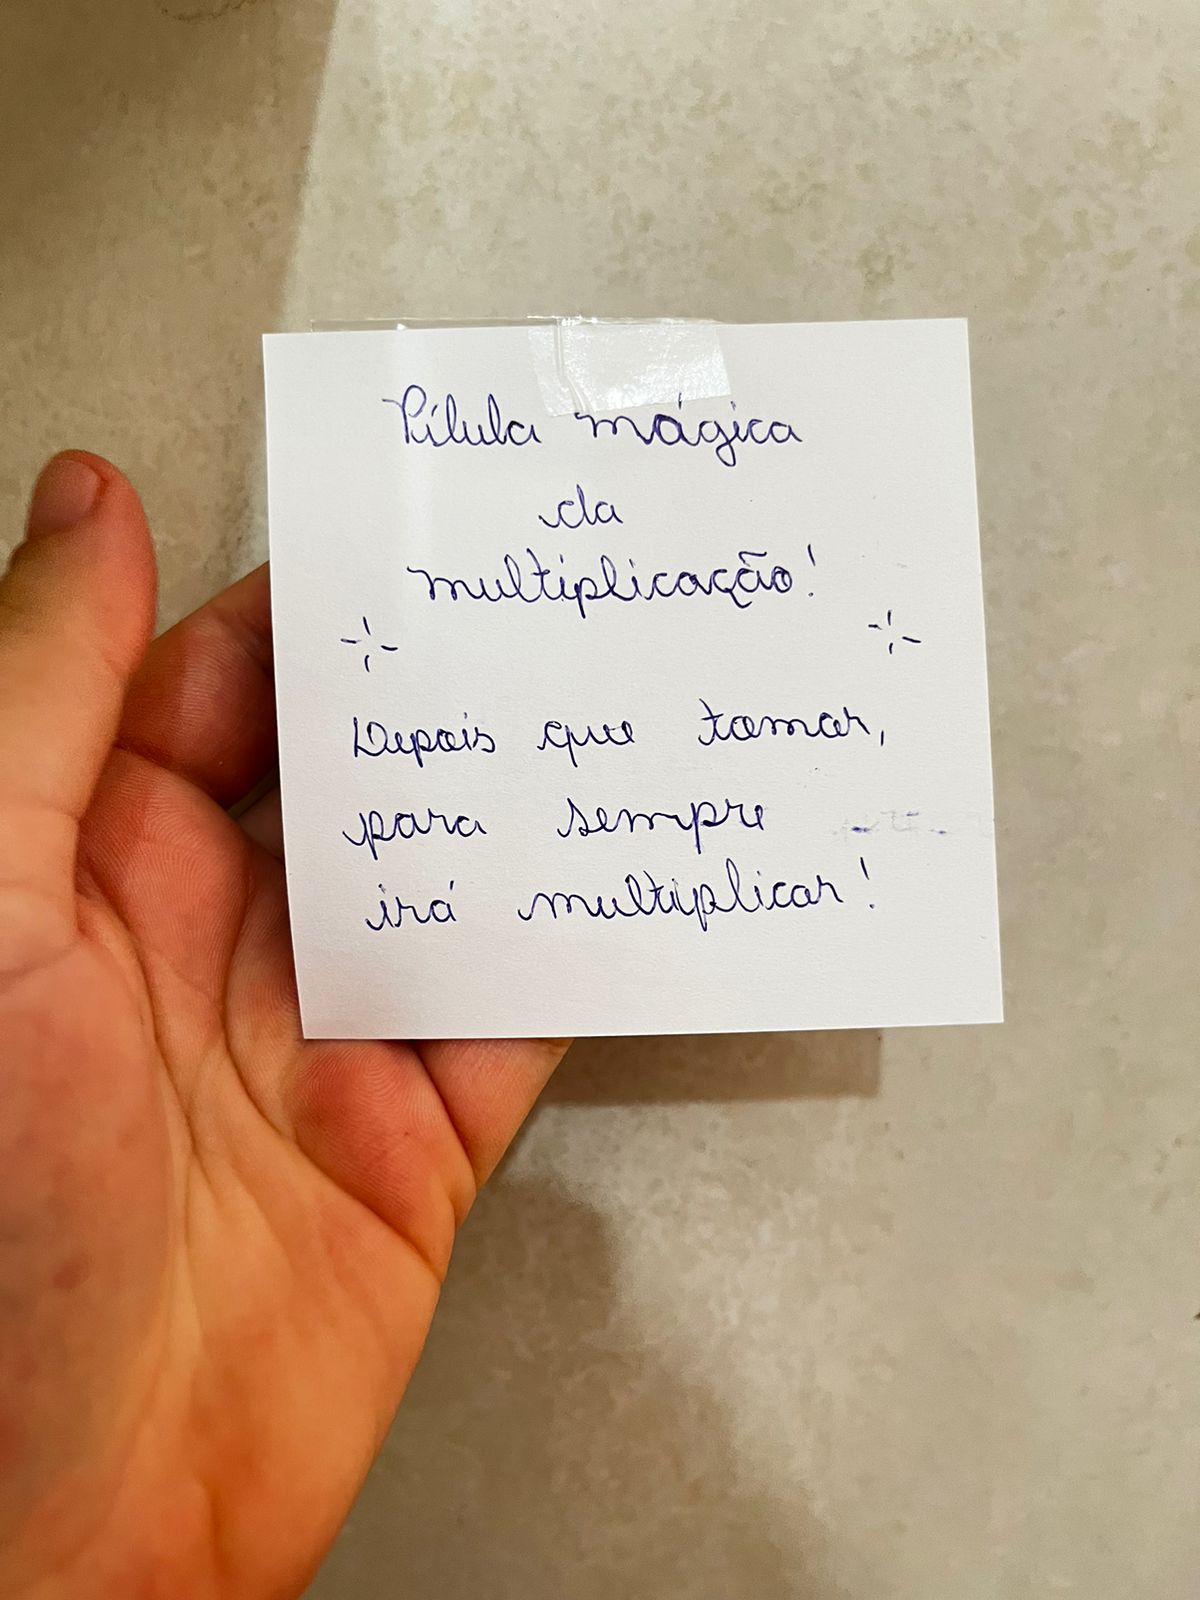 Pílula mágica
da
multiplicação!
Depois que tomar,
para sempre
irá multiplicar!